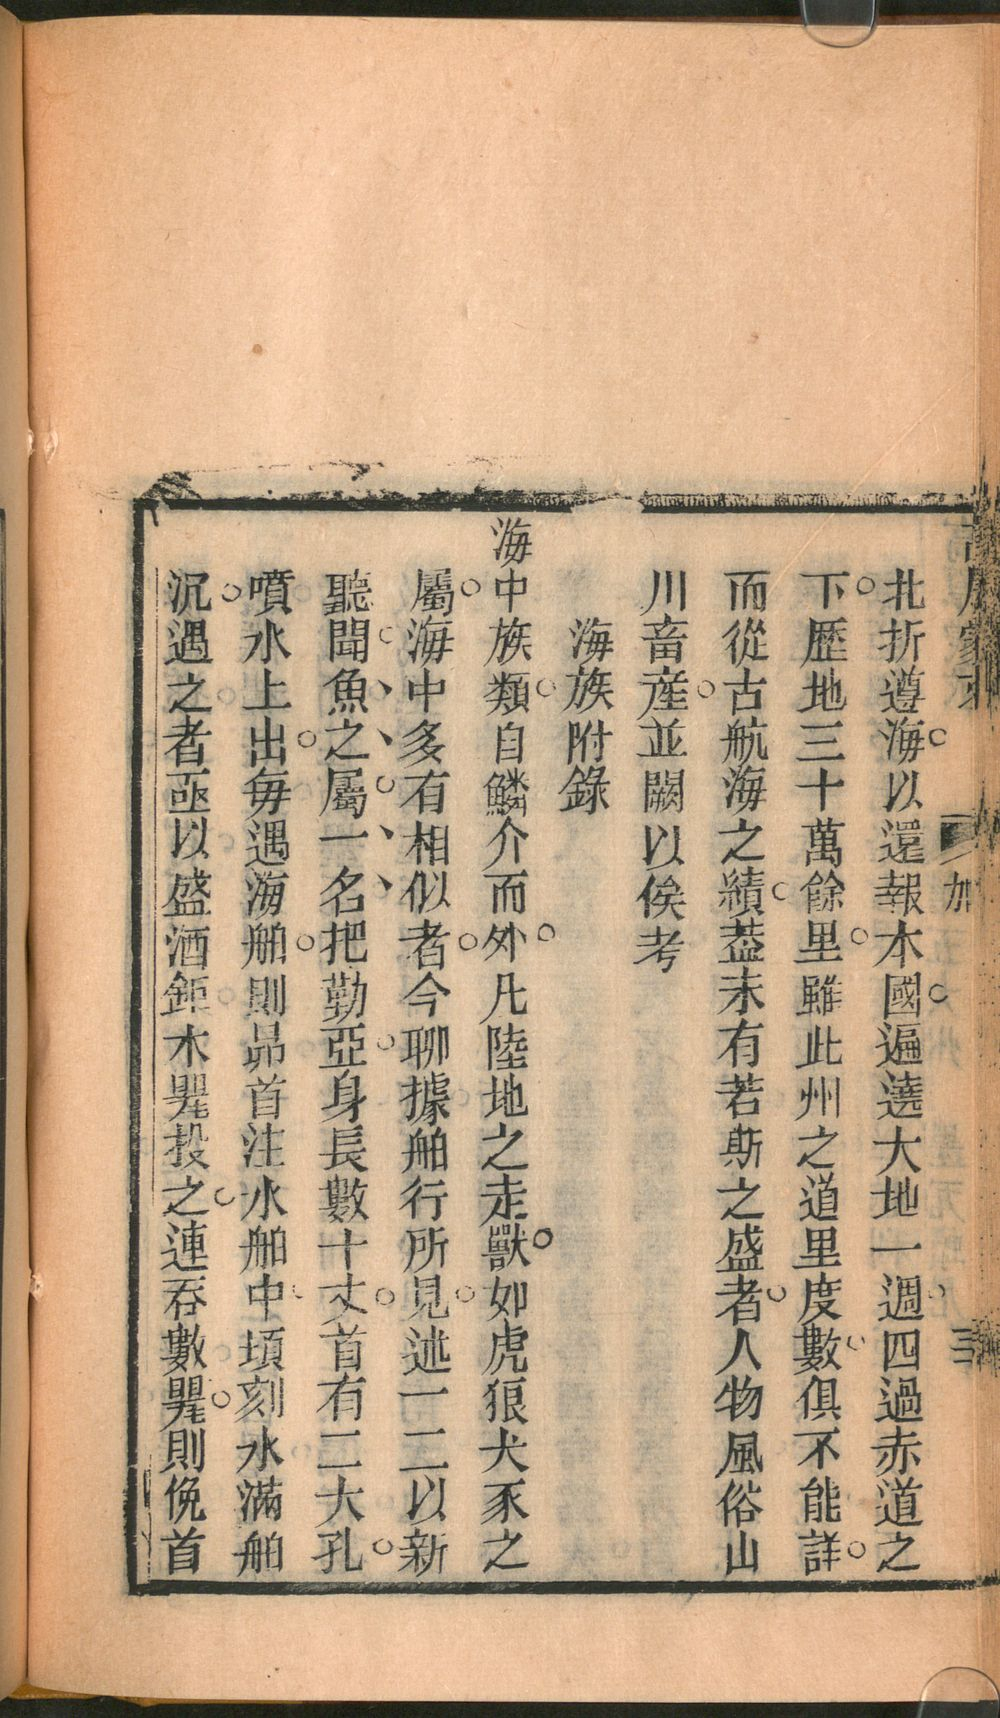 北折遵海以還報本國遍遶大地一週四過赤道之
下歷地三十萬餘里雖此州之道里度數俱不能詳
而從古航海之績葢未有若斯之盛者人物風俗山
川畜産並闕以俟考
海族附錄
海中族類自鱗介而外凡陸地之走獸如虎狼犬豕之
屬海中多有相似者今聊據舶行所見述一二以新
聽聞魚之屬一名把勒亞身長數十丈首有二大孔
噴水上出每遇海舶則昻首注水舶中頃刻水滿舶
沉遇之者亟以盛酒鉅木甖投之連吞數甖則俛首